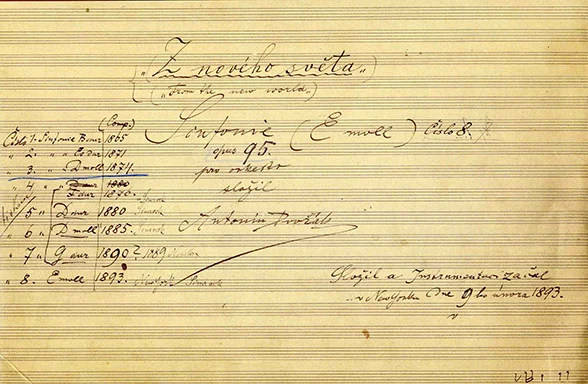 „Z nového světa„
(„From the new world„)
Sinfonie (E moll) Číslo 8.
opus 95.
pro orkestr
složil
Antonín Dvořák
(Comp.)
Číslo 1. Sinfonie B dur 1865
„ 2. „ Es dur 1871
„ 3. „ D moll 1874.
„ 4 „
F dur
„ 5 „ D dur 1880 Simrock
„ 6 „ D moll 1885. Simrock
„ 7 „ G dur 1890? 1889
„ 8. E moll 1893. New York Simrock
Složil a Instrumentaci začal
v New Yorku Dne 9ho února 1893.